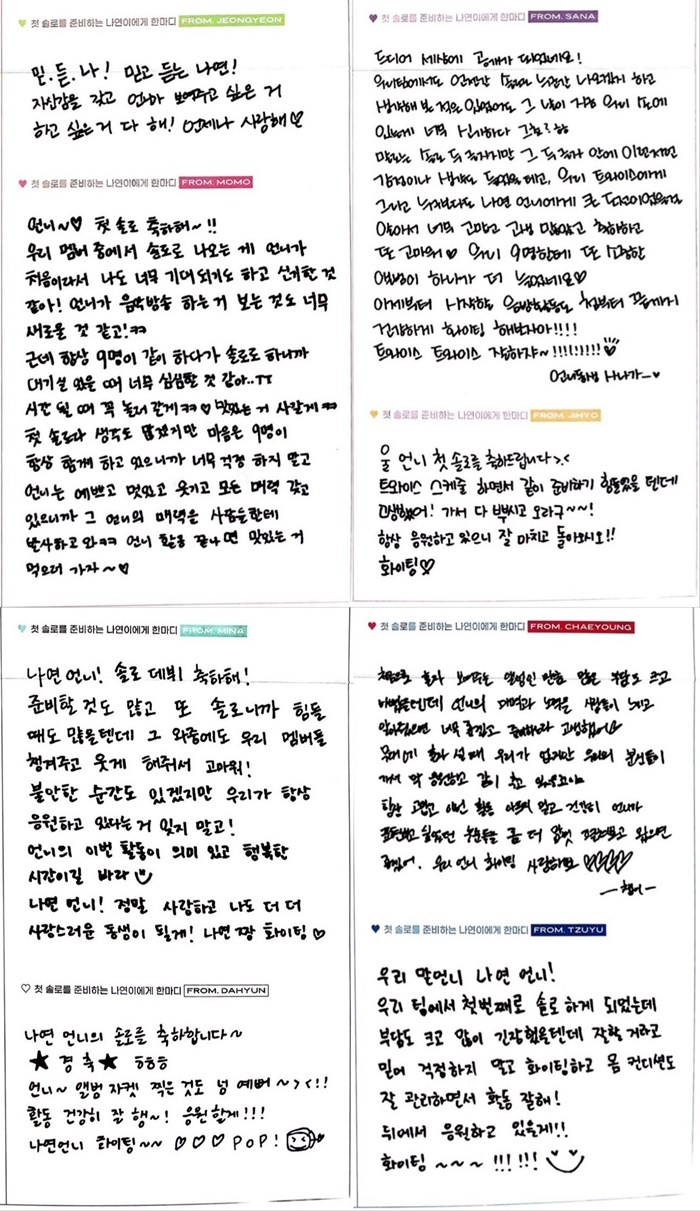 ♥ 첫 솔로를 준비하는 나연이에게 한마디 FROM. JEONGYEON
믿.듣.나! 믿고 듣는 나연!
자신감을 갖고 언니가 보여주고 싶은 거
하고 싶은 거 다 해! 언제나 사랑해♡
♥ 첫 솔로를 준비하는 나연이에게 한마디 FROM. MOMO
언니~♡ 첫 솔로 축하해~!!
우리 멤버 중에서 솔로로 나오는 게 언니가
처음이라서 나도 너무 기대되기도 하고 신기한 것
같아! 언니가 음악방송 하는 거 보는 것도 너무
새로울 것 같고!ㅋㅋ
근데 항상 9명이 같이 하다가 솔로로 하니까
대기실 있을 때 너무 심심할 것 같아..ㅠㅠ
시간 될 때 꼭 놀러 갈게ㅋㅋ♡ 맛있는 거 사갈게ㅋㅋ
첫 솔로다 생각도 많겠지만 마음은 9명이
항상 함께 하고 있으니까 너무 걱정 하지 말고
언니는 예쁘고 멋있고 웃기고 모든 매력 갖고
있으니까 그 언니의 매력은 사람들한테
발사하고 와ㅋㅋ 언니 활동 끝나면 맛있는 거
먹으러 가자~♡
♥ 첫 솔로를 준비하는 나연이에게 한마디 FROM. SANA
드디어 세상에 공개가 되었네요!
우리팀에서도 언젠간 솔로로 누군간 나오겠지 하고
생각해 본 적은 있었어도 그 날이 지금 우리 앞에
있는게 너무 신기하다 그쵸ㅎㅎ
말로는 솔로 두 글자지만 그 두 글자 안에 이런저런
감정이나 생각도 들었을 테고, 우리 트와이스에게
그리고 누구보다도 나연 언니에게 큰 도전이었을걸
알아서 너무 고맙고 고생 많았고 축하하고
또 고마워♡ 우리 9명한테 또 소중한
앨범이 하나가 더 늘었네요♡
이제부터 시작할 음방활동도 첨부터 끝까지
건강하게 화이팅 해보자아!!!!
트와이스 트와이스 잡하쟈~!!!!!!!!!♡
언니동생 사나가-♥
♥ 첫 솔로를 준비하는 나연이에게 한마디 FROM. JIHYO
울 언니 첫 솔로를 축하드립니다>.<
트와이스 스케줄 하면서 같이 준비하기 힘들었을 텐데
고생했어! 가서 다 뿌시고 오라구~~!
항상 응원하고 있으니 잘 마치고 돌아오시오!!
화이팅♡
♥ 첫 솔로를 준비하는 나연이에게 한마디 FROM. MINA
나연 언니! 솔로 데뷔 축하해!
준비할 것도 많고 또 솔로니까 힘들
때도 많을텐데 그 와중에도 우리 멤버들
챙겨주고 웃게 해줘서 고마워!
불안한 순간도 있겠지만 우리가 항상
응원하고 있다는 거 잊지 말고!
언니의 이번 활동이 의미 있고 행복한
시간이길 바라
나연 언니! 정말 사랑하고 나도 더 더
사랑스러운 동생이 될게! 나연 짱 화이팅♡
♡ 첫 솔로를 준비하는 나연이에게 한마디 FROM. DAHYUN
나연 언니의 솔로를 축하합니다~
★경축★ ㅎㅎㅎ
언니~ 앨범 자켓 찍은 것도 넘 예뻐~><!!
활동 건강히 잘 행~! 응원할게!!!
나연언니 화이팅~~ ♡♡♡ POP!
♥ 첫 솔로를 준비하는 나연이에게 한마디 FROM. CHAEYOUNG
보여주는 앨범인 만큼 많은 부담도 크고
언니의 매력과 노력을 사람들이 느끼고
너무 즐겁고 고생했어♡
무대에 혼자 설 때 우리가 없지만 우리의 분신들이
가서 막 응원하고 같이 춤추고 있을꺼야
항상 그랬고 이번 활동 아프지 말고 건강히 언니가
더
좋겠어. 우리 언니 화이팅 사랑하묘 ♡♡♡♡
-챙이-
♥ 첫 솔로를 준비하는 나연이에게 한마디 FROM. TZUYU
우리 맏언니 나연 언니!
우리 팀에서 첫번째로 솔로 하게 되었는데
부담도 크고 많이 긴장했을텐데 잘할 거라고
믿어 걱정하지 말고 화이팅하고 몸 컨디션도
잘 관리하면서 활동 잘해!
뒤에서 응원하고 있을게!!
화이팅~~~!!!!!!